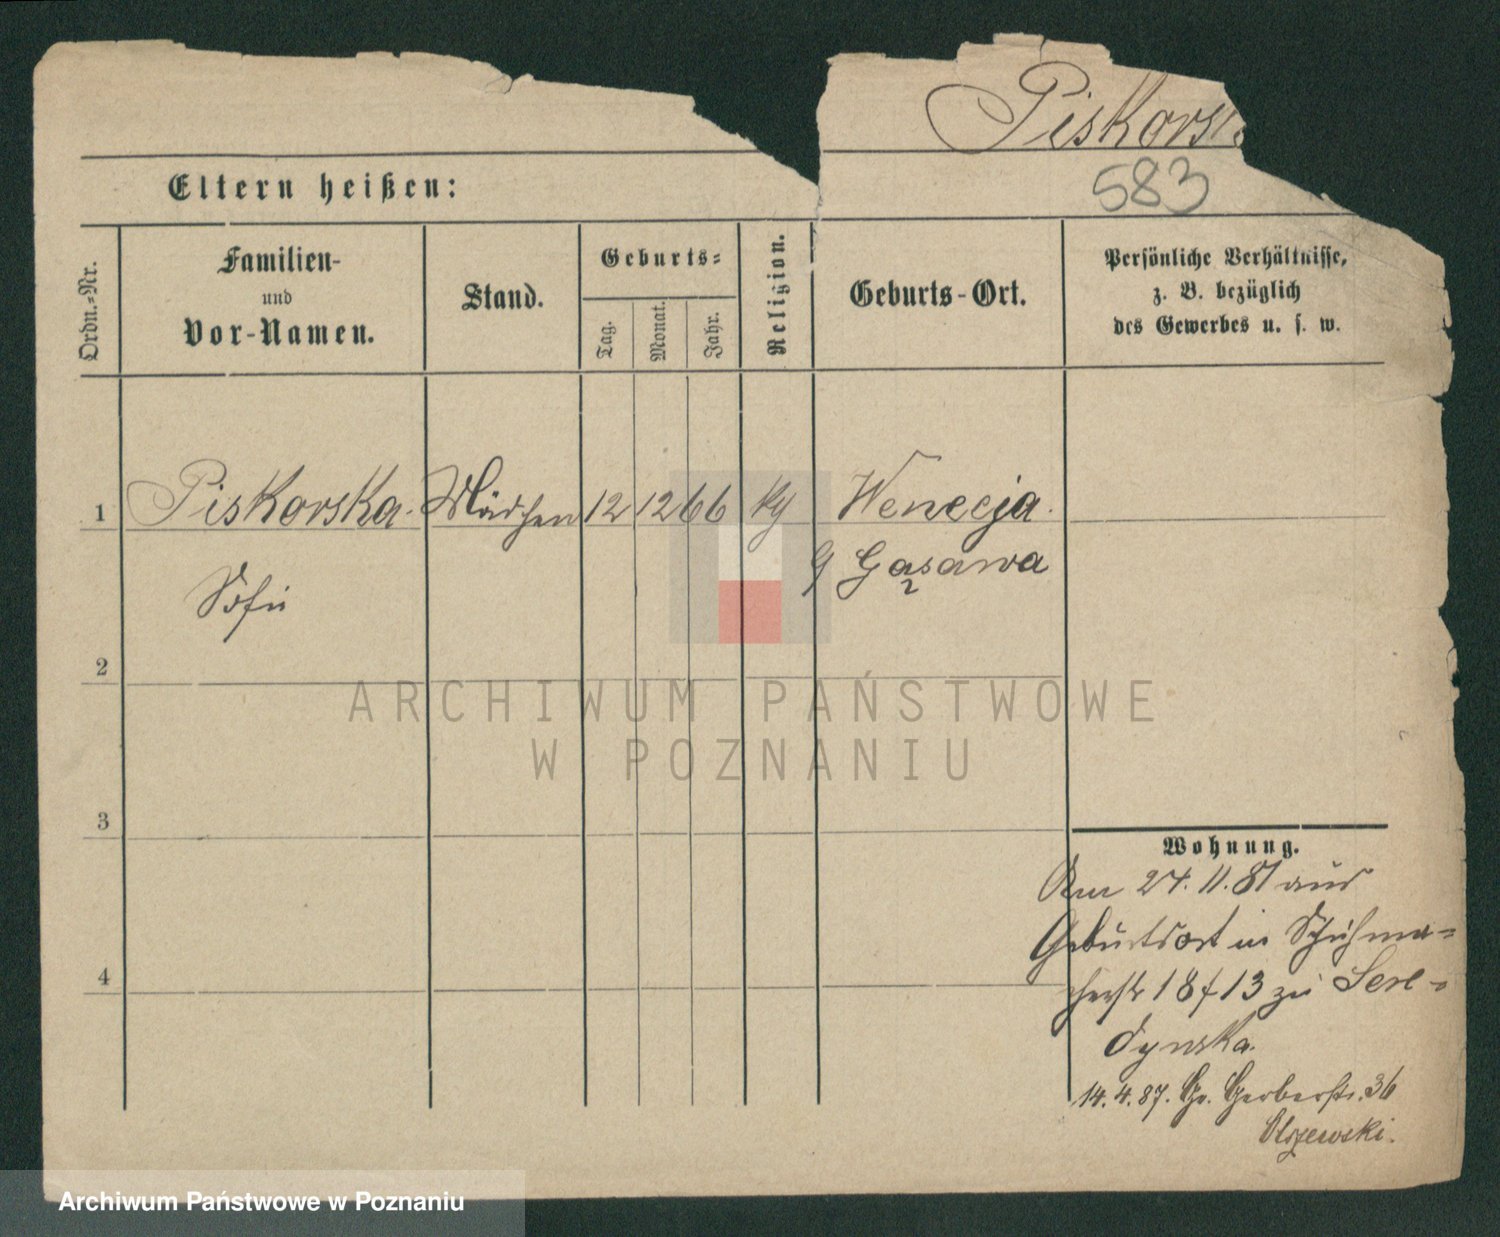 Piskorsk
583
Eltern heißen:
Ordn.-Nr.
Familien-
und
Vor-Namen.
Stand.
Geburts-
Tag.
Monat.
Jahr.
Religion.
Geburts-Ort.
Persönliche Verhältnisse,
z. B. bezüglich
des Gewerbes u. s. w.
1 Piskorska Mädchen 12 12 66 kg Wenecja
Sofie g Gąsawa
2
ARCHIWUM PAŃSTWOWE
W POZNANIU
3
Wohnung.
Am 24. 11. 81 aus
Geburtsort in Schuhma-
cherstr 18 f 13 zu
dynska.
14. 4. 87. Gr. Gerberstr. 36
4
Archiwum Państwowe w Poznaniu